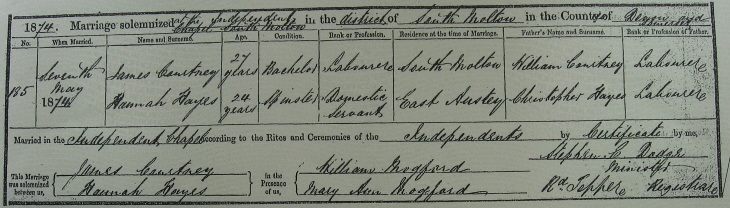 1874. Marriage solemnized at the Independent Chapel South Molton in the district of South Molton in the County of Devon
No. When Married. Name and Surname. Age. Condition. Rank or Profession. Residence at the time of Marriage. Father's Name and Surname. Rank or Profession of Father.
185 Seventh May 1874 James Courtney 27 years Bachelor Labourer South Molton William Courtney Labourer
Hannah Hayes 24 years Spinster Domestic servant East Anstey Christopher Hayes Labourer
Married in the Independent Chapel according to the Rites and Ceremonies of the Independents by Certificate by me,
This Marriage was solemnized between us, James Courtney Hannah Hayes In the Presence of us, William Mogford Mary Ann Mogford
Stephen Minister
Rd. Tepper Registrar